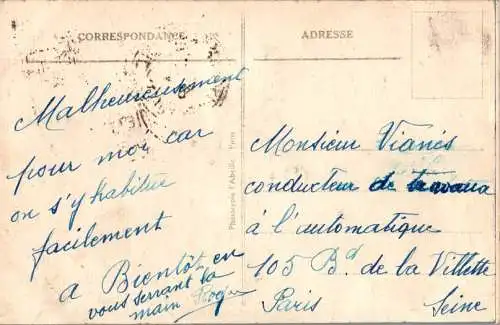 CORRESPONDANCE
ADRESSE
Malheureusement
pour moi car
on s'y habitue
facilement
à Bientôt en
vous serrant la
main Roger
Phototypie l'Abeille Paris
Monsieur Vianès
conducteur de travaux
à l'automatique
105 Bd de la Villette
Paris Seine